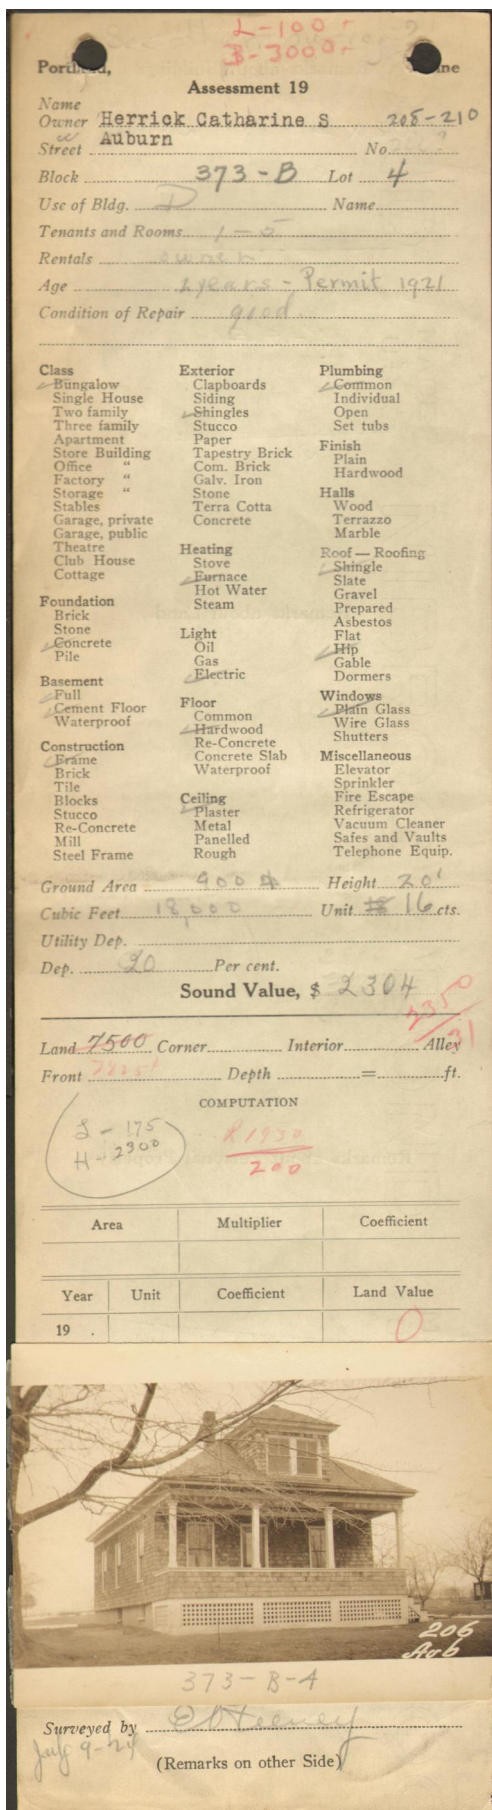 L-100-
B-3000-
Portland, Maine
Assessment 19
Name
Owner Herrick Catharine S 208-210
Street Auburn No.
Block 373-B Lot 4
Use of Bldg. D Name
Tenants and Rooms 1-5
Rentals owner
Age 2 years - Permit 1921
Condition of Repair good
Class
Bungalow
Single House
Two family
Three family
Apartment
Store Building
Office "
Factory "
Storage "
Stables
Garage, private
Garage, public
Theatre
Club House
Cottage
Foundation
Brick
Stone
Concrete
Pile
Basement
Full
Cement Floor
Waterproof
Construction
Frame
Brick
Tile
Blocks
Stucco
Re-Concrete
Mill
Steel Frame
Exterior
Clapboards
Siding
Shingles
Stucco
Paper
Tapestry Brick
Com. Brick
Galv. Iron
Stone
Terra Cotta
Concrete
Heating
Stove
Furnace
Hot Water
Steam
Light
Oil
Gas
Electric
Floor
Common
Hardwood
Re-Concrete
Concrete Slab
Waterproof
Ceiling
Plaster
Metal
Panelled
Rough
Plumbing
Common
Individual
Open
Set tubs
Finish
Plain
Hardwood
Halls
Wood
Terrazzo
Marble
Roof — Roofing
Shingle
Slate
Gravel
Prepared
Asbestos
Flat
Hip
Gable
Dormers
Windows
Plain Glass
Wire Glass
Shutters
Miscellaneous
Elevator
Sprinkler
Fire Escape
Refrigerator
Vacuum Cleaner
Safes and Vaults
Telephone Equip.
Ground Area 900 Height 20'
Cubic Feet 18,000 Unit 16 cts.
Utility Dep.
Dep. 20 Per cent.
Sound Value, $ 2304
2350/31
Land 7500 Corner Interior Alley
Front Depth = ft.
COMPUTATION
L - 175
H - 2300
R 1950
200
Area Multiplier Coefficient
Year Unit Coefficient Land Value
19 . 0
206
Aub
373-B-4
Surveyed by
July 9-24
(Remarks on other Side)